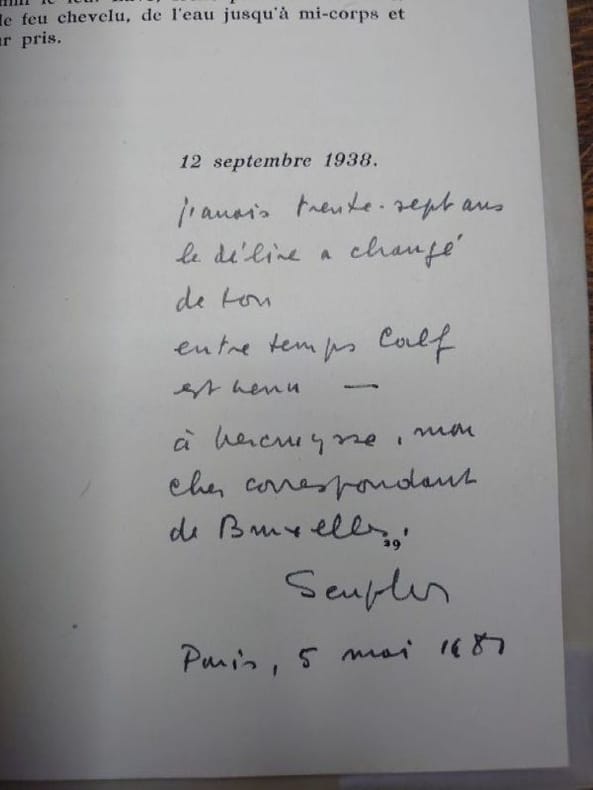 le feu chevelu, de l'eau jusqu'à mi-corps et
r pris.
12 septembre 1938.
j'avais trente-sept ans
le délire a changé
de ton
entre temps
est venu —
à Vercruysse, mon
cher correspondant
de Bruxelles,
39
Seuphor
Paris, 5 mai 1987